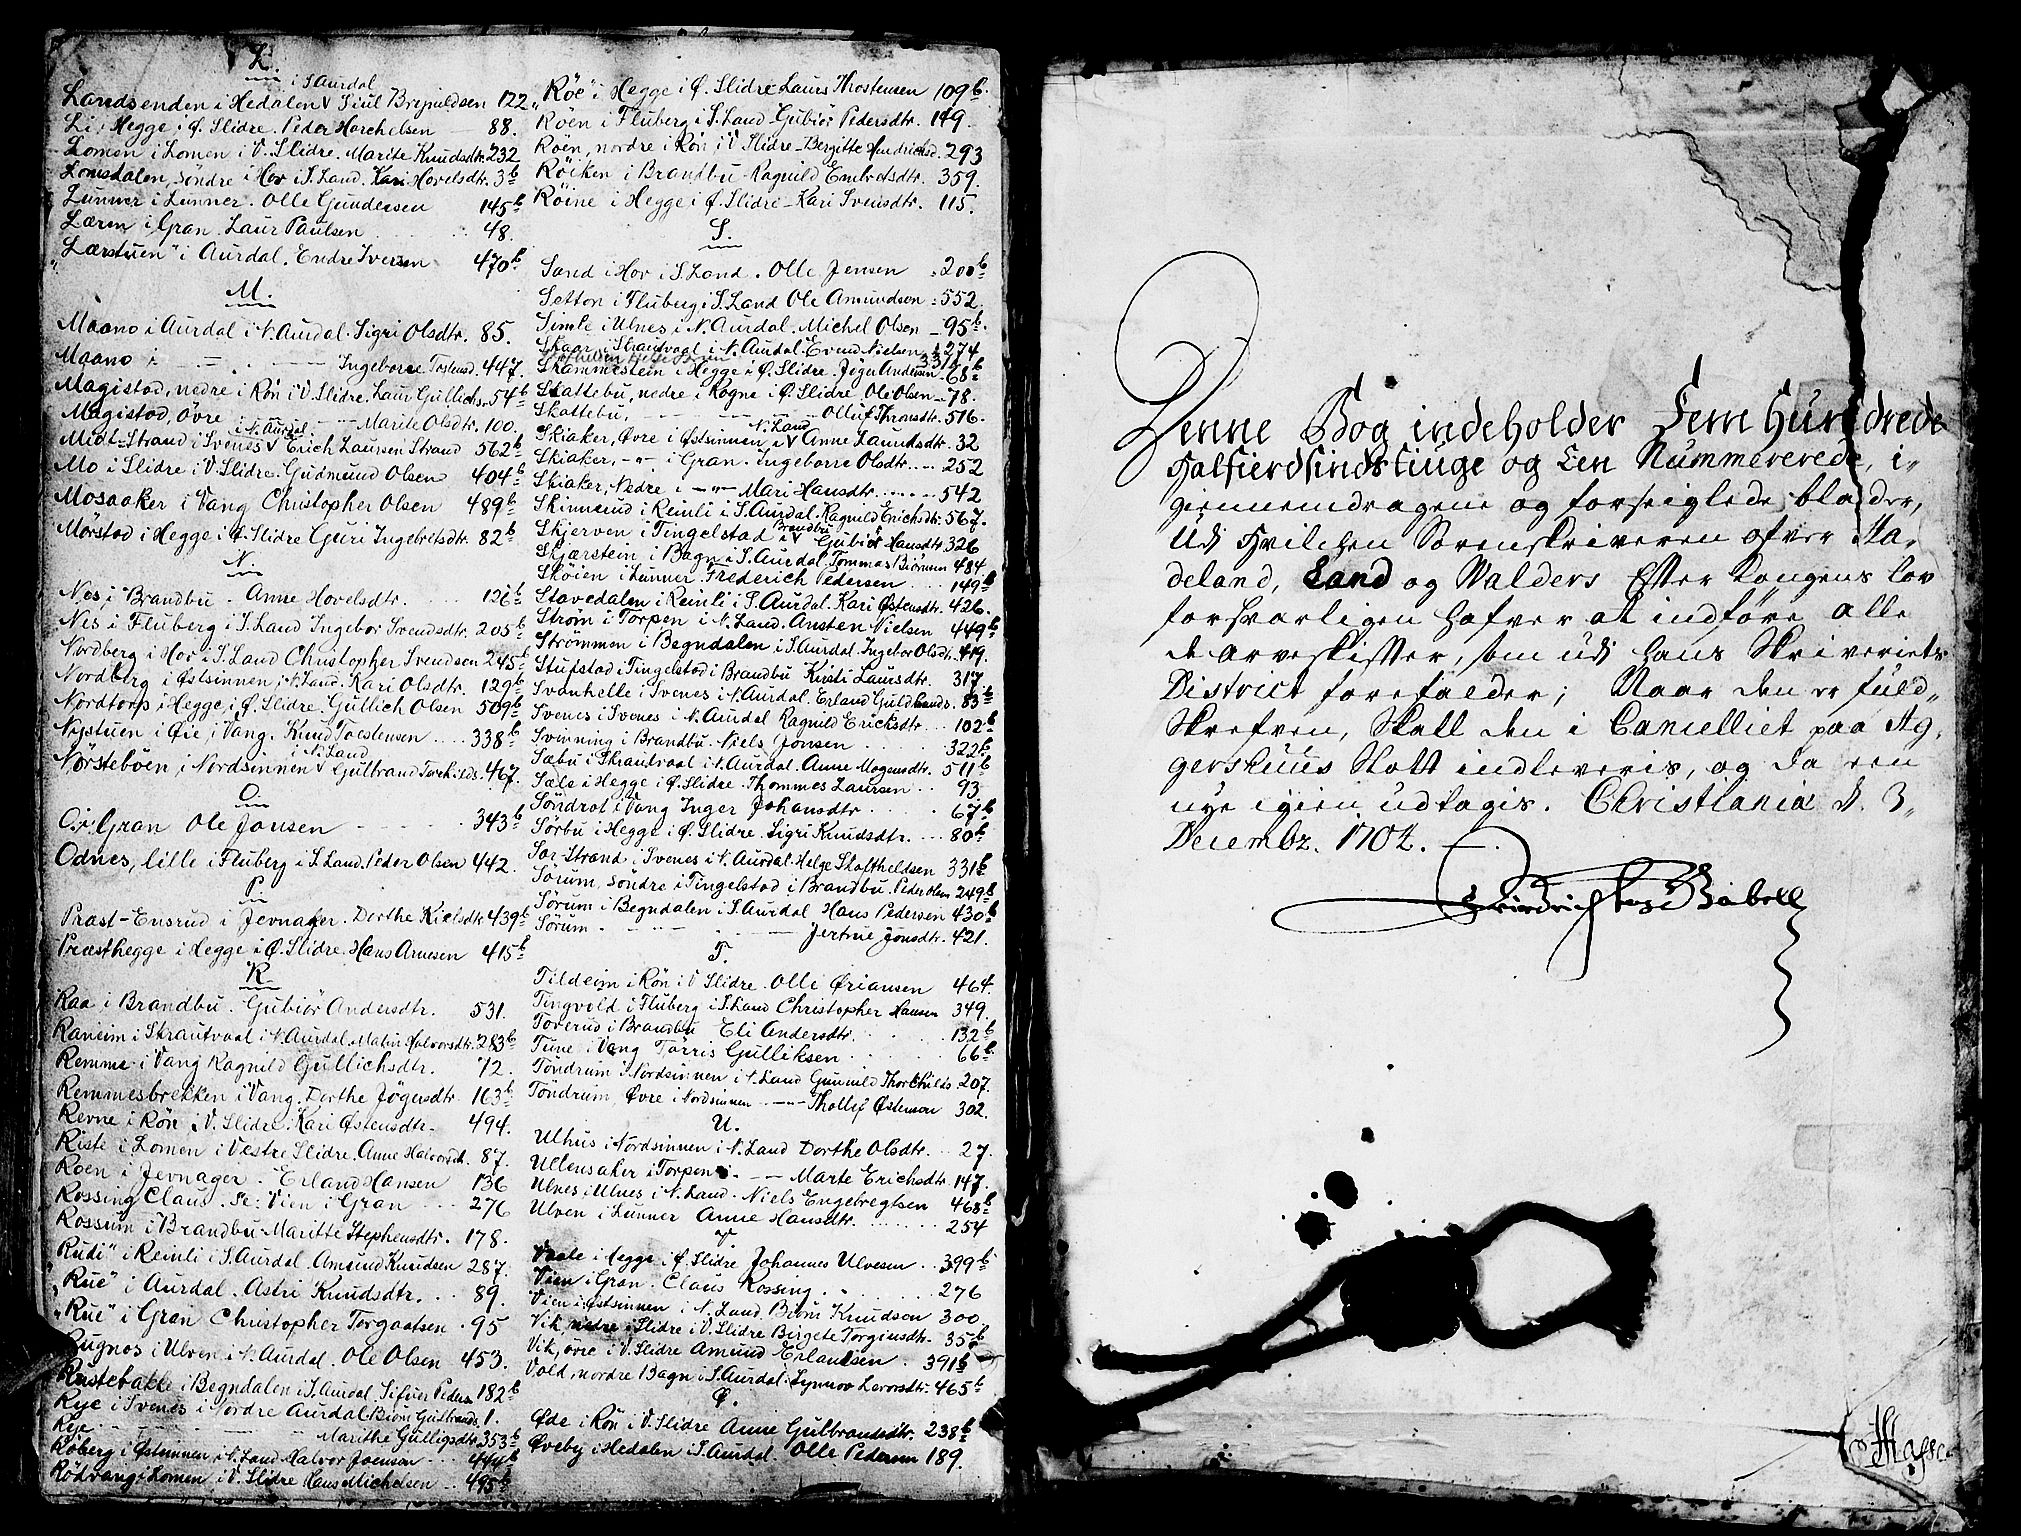 L.
i S. Aurdal
Landsenden i Hedalen v Siul Brynildsen 122
Li i Hegge i Ø. Slidre. Peder Horchelsen — 88.
Lomen i Lomen i V. Slidre. Marite Knudsdtr. 232
Lomsdalen, søndre i Hov i S. Land. Kari Hovelsdtr. 3b
Lunner i Lunner. Olle Gundersen 145b
Lærm i Gran. Laur Paulsen 48.
„Lærstuen" i Aurdal. Endre Iversen 470b
M.
Maano i Aurdal i N. Aurdal. Sigri Olsdtr. 85.
Maano i — — Ingeborre Tostensd. 447.
Magistad, nedre i Røn i V. Slidre. Laur Gullichs. 54b
Magistad, øvre — Marite Olsdtr. 100.
i N. Aurdal
Midt-Strand i Svenes v Erich Laursen Strand 562b
Mo i Slidre i V. Slidre. Gudmund Olsen 404b
Mosaaker i Vang Christopher Olsen 489b
Mørstad i Hegge i Ø. Slidre Guri Ingebretsdtr. 82b
N.
Nes i Brandbu. Anne Hovelsdtr. 126b
Nes i Fluberg i S. Land Ingebor Svendsdtr. 205b
Nordberg i Hov i S. Land Christopher Svendsen 245b
Nordberg i Østsinnen i N. Land. Kari Olsdtr. 129b
Nordtorp i Hegge i Ø. Slidre. Gullich Olsen 509b
Nystuen i Øie i Vang. Knud Tostensen 338b
i N. Land
Nørsteböen i Nordsinnen v Gulbrand Torchilds. 467.
O.
O. i Gran Ole Jonsen 343b
Odnes, lille i Fluberg i S. Land. Peder Olsen 442.
P.
Præst-Ensrud i Jevnaker. Dorthe Nielsdtr 439b
Præsthegge i Hegge i Ø. Slidre. Hans Arnesen 415b
R.
Raa i Brandbu. Gubiör Andersdtr. 531.
Raneim i Strautvaal i N. Aurdal. Matiis Halvorsdtr. 283b
Remme i Vang Ragnild Gullichsdtr. 72.
Remmesbrekken i Vang. Dorthe Jögersdtr. 163b
Revne i Røn i V. Slidre. Kari Østensdtr. 494.
Riste i Lomen i Vestre Slidre. Anne Halvorsdtr. 87.
Roen i Jevnager. Erland Hansen 136
Rossing Claus. Se: Vien i Gran 276
Rossum i Brandbu Maritte Stephensdtr. 178.
Rudi" i Reinli i S. Aurdal. Amund Knudsen 287.
„Rue" i Aurdal. Astri Knudsdtr. 89.
„Rue" i Gran Christopher Torgaatsen 95
Rugnos i Ulven i N. Aurdal. Ole Olsen 453.
Rustebakke i Begndalen i S. Aurdal. Sifuer Peders. 182b
Rye i Svenes i Nordre Aurdal Biörn Gulbrands. 1.
Rye — Marithe Gulligsdtr. 353b
Röberg i Østsinnen i N. Land Halvor Joensen 444b
Rödvang i Lomen i V. Slidre Hans Michelsen 495b
„Röe" i Hegge i Ø. Slidre Laurs Thostensen 109b.
Röen i Fluberg i S. Land Gubiör Pedersdtr. 149.
Röen, nordre i Røn i V. Slidre Bergitte Hendrichsd. 293
Röiken i Brandbu Ragnild Embretsdtr. 359.
Röine i Hegge i Ø. Slidre Kari Svensdtr. 115.
S.
Sand i Hov i S. Land. Olle Jensen 200b
Setton i Fluberg i S. Land Ole Amundsen 552.
Simle i Ulnes i N. Aurdal. Michel Olsen 95b.
Skaar i Strautvaal i N. Aurdal. Evend Nielsen 274
Skammestein i Hegge i Ø. Slidre. Jöger Andersen 68b
Skattebu, nedre i Rogne i Ø. Slidre Ole Olsen 78.
Skattebu, — — Olluf Thronsdtr. 516.
N. Land
Skiaker, Øvre i Østsinnen i v Anne Laursdtr. 32
Skiaker, — i Gran. Ingeborre Olsdtr. 252
Skiaker, Nedre i — Mari Hansdtr. 542
Skinnerud i Reinli i S. Aurdal. Ragnild Erichsdtr. 567.
Brandbu
Skjerven i Tingelstad i v Gubiör Hansdtr. 326
Skjærstein i Bagn i S. Aurdal. Tommas Biörnsen 484
Skøien i Lunner. Frederich Pedersen 149b
Stavedalen i Reinli i S. Aurdal. Kari Østensdtr. 426.
Strøm i Torpen i N. Land. Ansten Nielsen 449b
Strømmen i Begndalen i S. Aurdal. Ingebor Olsdtr. 419.
Stufstad i Tingelstad i Brandbu Kirsti Laursdtr. 317
Svanhelle i Svenes i N. Aurdal. Erland Guldbrands. 83b
Svenes i Svenes i N. Aurdal Ragnild Erichsdtr 102b
Svinning i Brandbu. Niels Jonsen 322b.
Sæbu i Skrautvaal i N. Aurdal. Anne Mogensdtr. 511b
Sæle i Hegge i Ø. Slidre. Thommes Laursen 93
Söndrol i Vang Inger Johansdtr 67b
Sörbu i Hegge i Ø. Slidre. Sigri Knudsdtr. 80b
Sør-Strand i Svenes i N. Aurdal Helge Skaftheldsen 331b
Sørum, søndre i Tingelstad i Brandbu. Peder Olsen 249b
Sørum i Begndalen i S. Aurdal Hans Pedersen 430b
Sørum — Jertrue Jonsdtr. 421.
T.
Tildeim i Røn i V Slidre. Olli Øriansen 464.
Tingvold i Fluberg i S. Land Christopher Hansen 349.
Toverud i Brandbu Eli Andersdtr. 132b
Tune i Vang Torris Gulliksen 66b
Töndrum i Nordsinnen i N. Land Gunnild Thorchilds. 207.
Töndrum, Øvre i Nordsinnen — Thollef Østensen 302.
U.
Ulhus i Nordsinnen i N. Land Dorthe Olsdtr. 27.
Ullensaker i Torpen i. — Marte Erichsdtr. 147.
Ulnes i Ulnes i N. Land. Niels Engebregtsen 468b
Ulven i Lunner Anne Hansdtr. 254
V.
Vaale i Hegge i Ø. Slidre Johannes Ulvesen 399b
Vien i Gran. Claus Rossing 276
Vien i Østsinnen i N. Land Biørn Knudsen 300
Vik, nedre i Slidre i V. Slidre Birgete Torgiusdtr. 35b
Vik, øvre i V. Slidre Amund Erlandsen 391b
Vold, nordre Bagn i S. Aurdal. Synnov Levorsdtr. 465b
Ø.
Øde i Røn i V. Slidre Anne Gulbrandsdtr. 238b
Øveby i Hedalen i S. Aurdal. Olle Pedersen 189.
Denne Bog indeholder Fem Hundrede
Halfierdsindstiuge og Een Nummererede, i„
giennemdragene og forseiglede blader,
Udi Hvilchen Sorenskriveren ofver Ha„
deland, Land og Walders Efter Kongens Lov
forsvarligen hafver at indføre alle
de arveskifter, som udi hans Skriveriets
District forefalder; Naar den er fuld„
Skrefven, Skall den i Cancelliet paa Ag„
gershuus Slott indleveris, og da een
nye igien udtagis. Christiania d. 3„
Decembr. 1702.